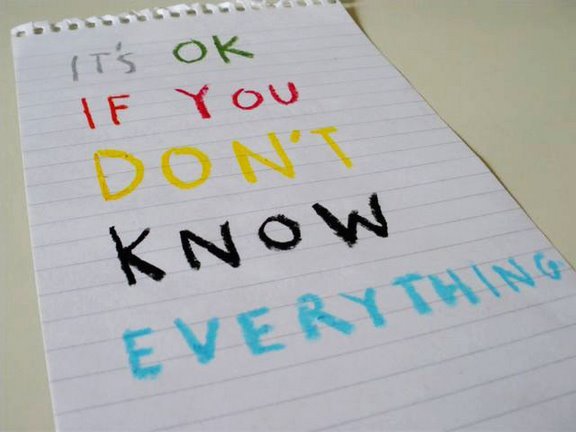 IT'S OK
IF YOU
DON'T
KNOW
EVERYTHING